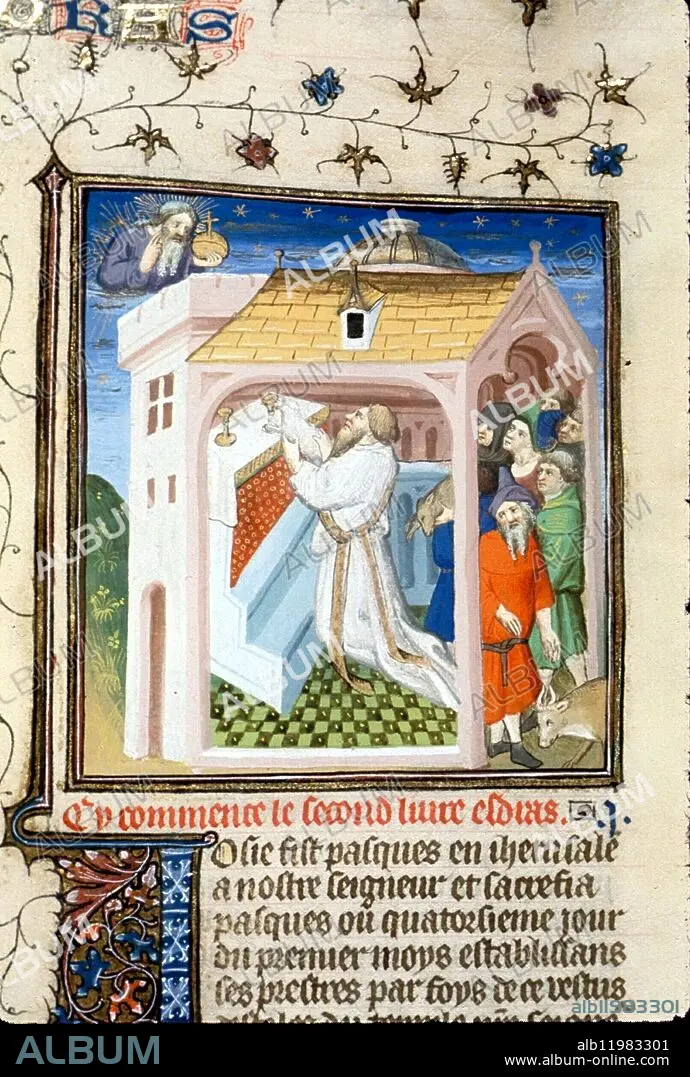 RAS
Cy commence le second livre esdras. .i.
Osie fist pasques en iherusale
a nostre seigneur et sacrefia
pasques ou quatorsieme jour
du premier moys establissans
ses prestres par foys de ce vestus
alb11983301
ALBUM
alb11983301
www.album-online.com